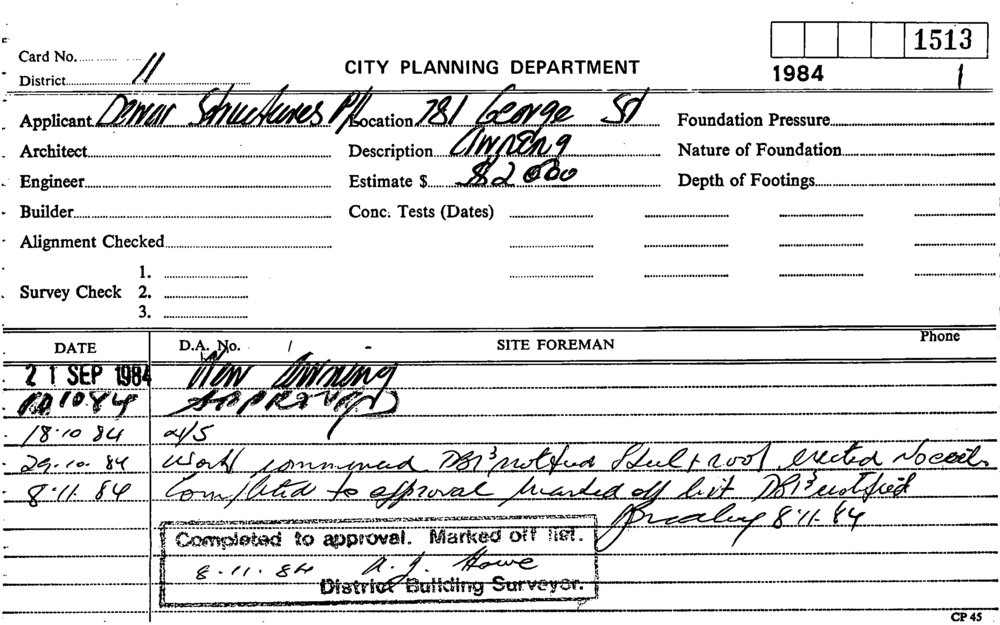 1513
Card No.
11
CITY PLANNING DEPARTMENT
1984 1
District
Applicant Structures P/L Location 781 George St Foundation Pressure
Architect Description Awning Nature of Foundation
Engineer Estimate $ $2000 Depth of Footings
Builder Conc. Tests (Dates)
Alignment Checked
1.
Survey Check 2.
3.
DATE D.A. No. / - SITE FOREMAN Phone
21 SEP 1984 New Awning
10.84 APPROVED
18.10 84 n/s
29.10.84 Work commenced notified Steel & roof erected No
8.11.84 Completed to approval marked off list notified
8.11.84
Completed to approval. Marked off list.
8.11.84 A. J. Howe
District Building Surveyor.
CP 45